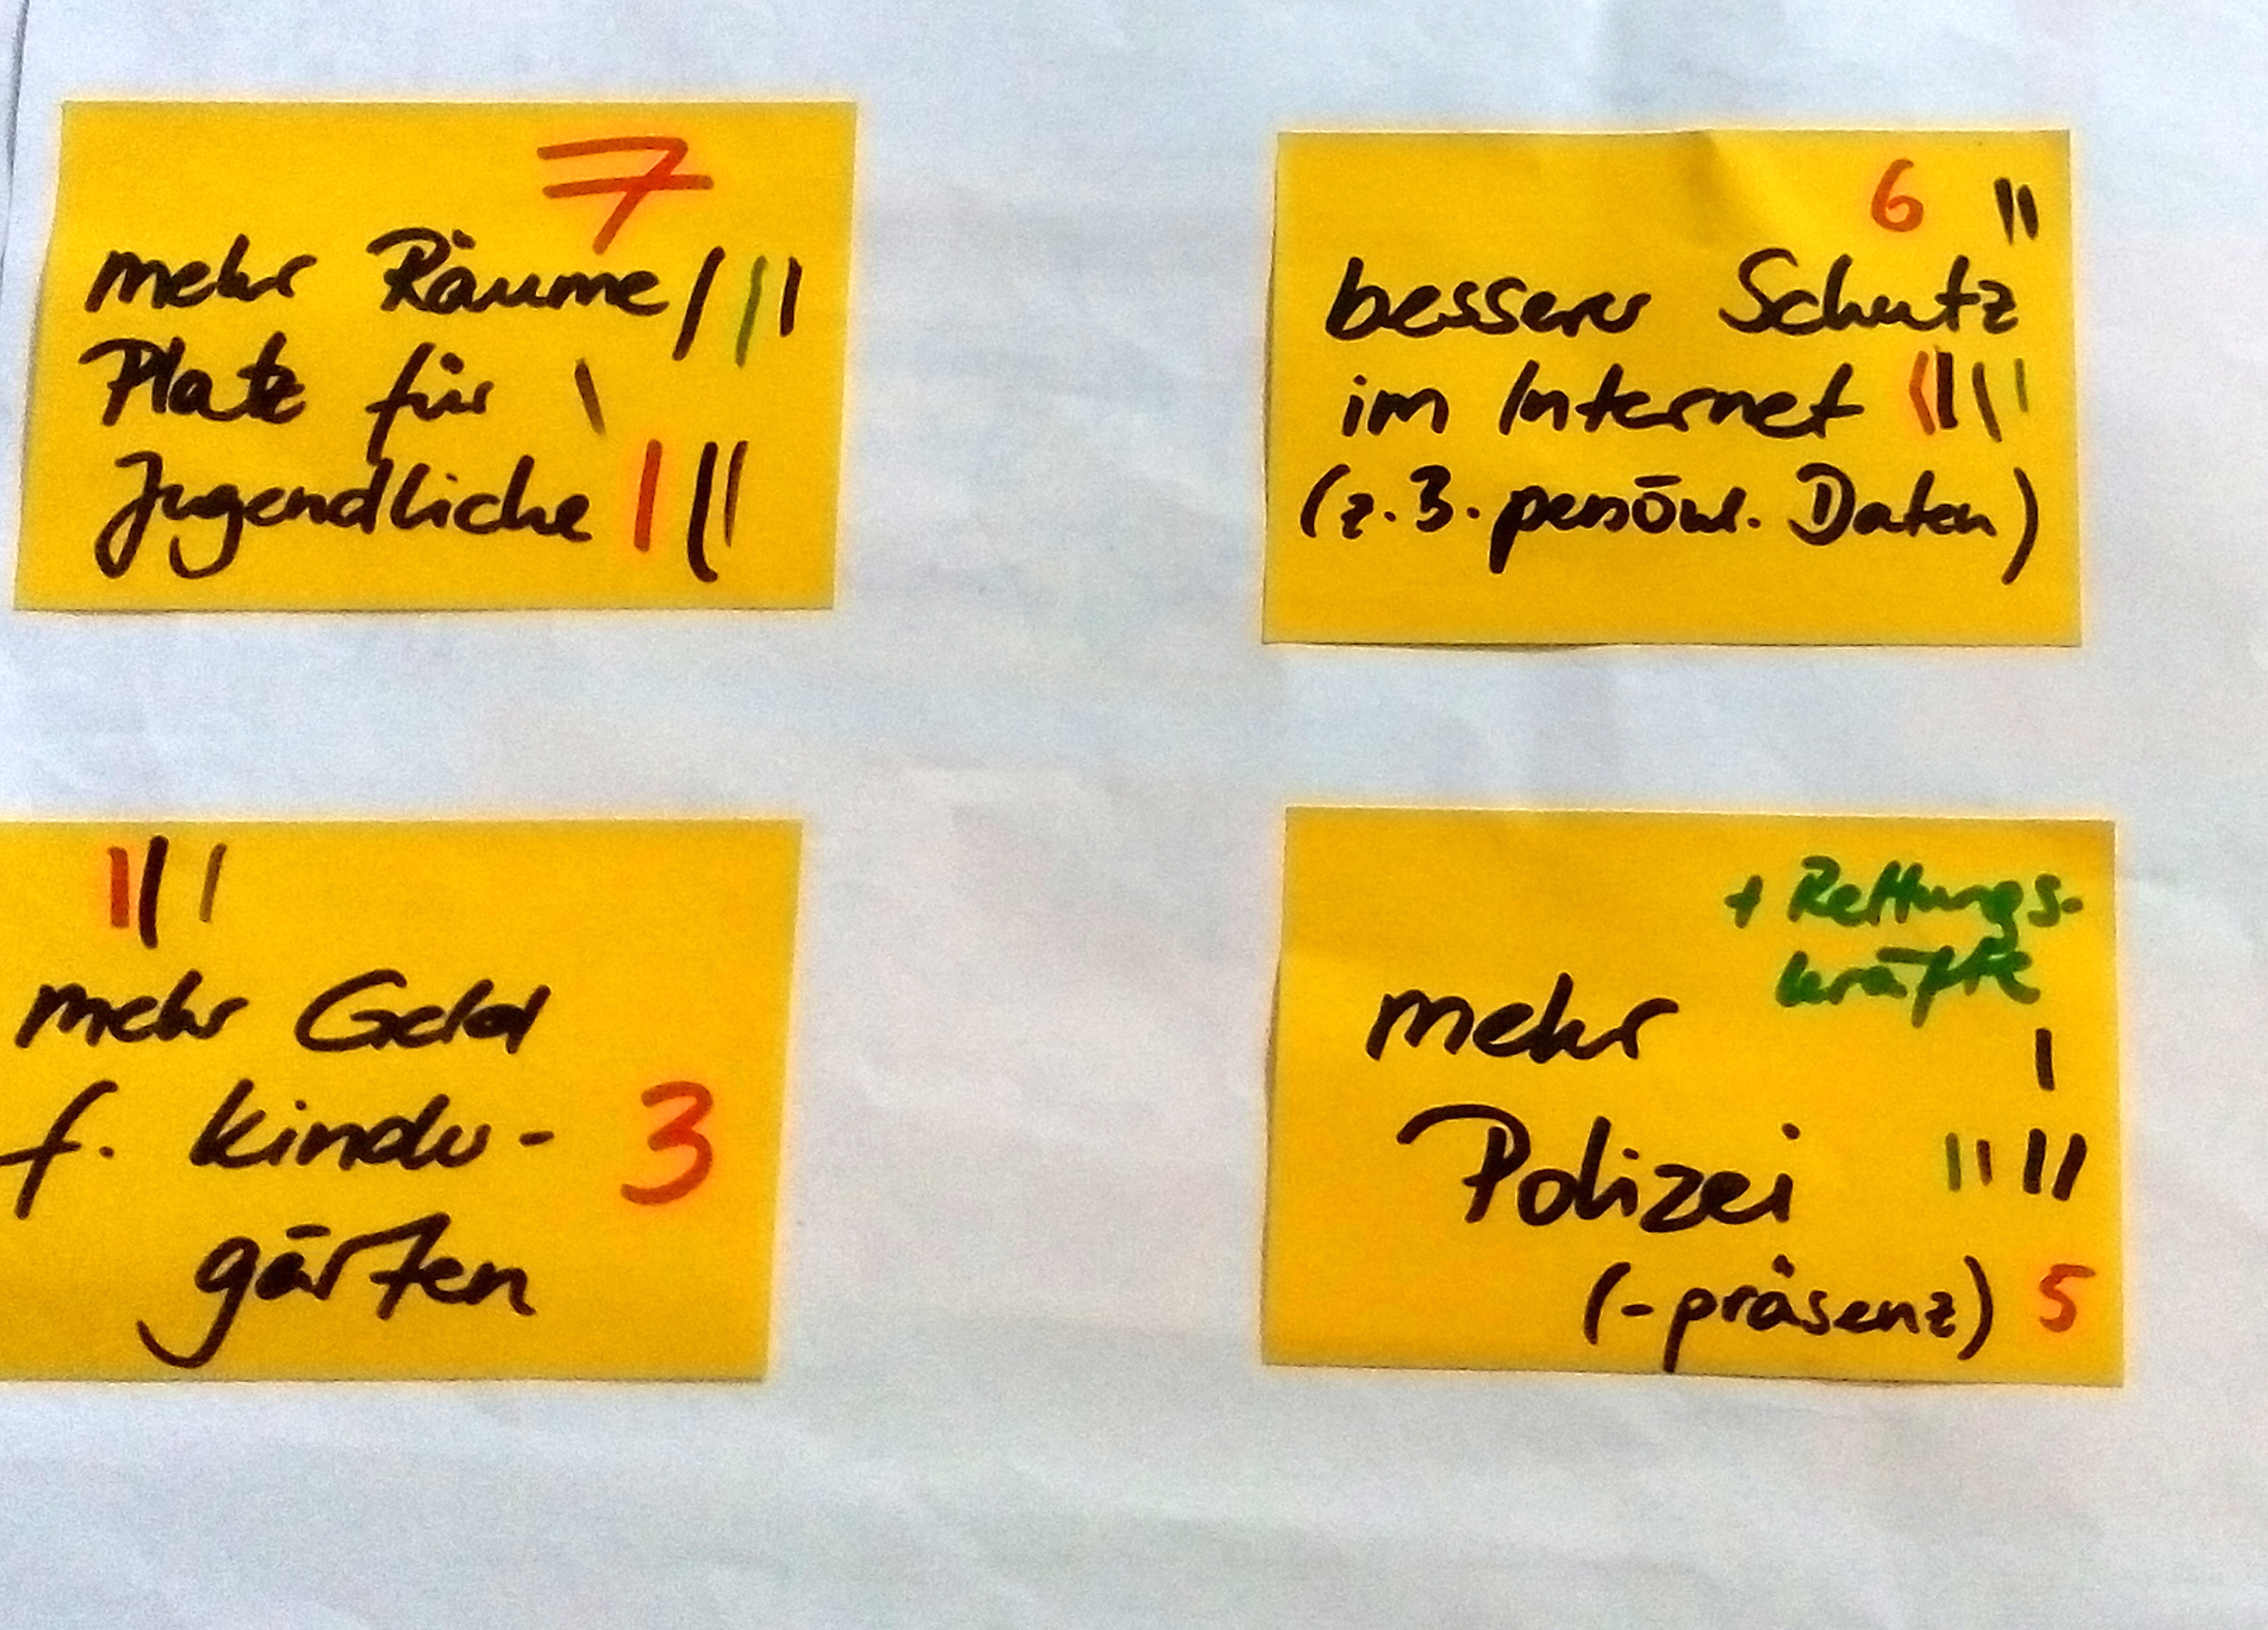 7
mehr Räume/
Platz für
Jugendliche
6
besserer Schutz
im Internet
(z.B. persönl. Daten)
mehr Geld
f. Kinder-
gärten
3
+ Rettungs-
kräfte
mehr
Polizei
(-präsenz) 5